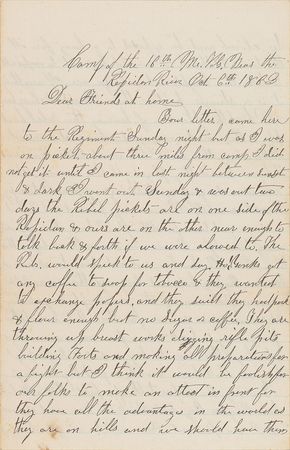 Camp of the 16th, Me. V., Near the
Rapidan River Oct 6th 1863
Dear Friends at home
Your letter, came here
to the Regiment Sunday night but as I was
on picket about three miles from camp I did
not get it until I came in last night between sunset
& dark I went out Sunday & was out two
days the Rebel pickets are on one side of the
Rapidan & ours are on the other near enough to
talk back & forth if we were alowed to The
Rebs, would speak to us and say Hi Yanks got
any coffee to swop for tobacco & they wanted
to exchange papers, and they said they had pork
& flour enough but no sugar or coffee, They are
throwing up breast works digging rifle pits
building forts and making all preparations for
a fight but I think it would be foolish for
our folks to make an attact in front for
they have all the advantages in the world as
they are on hills and we should have them